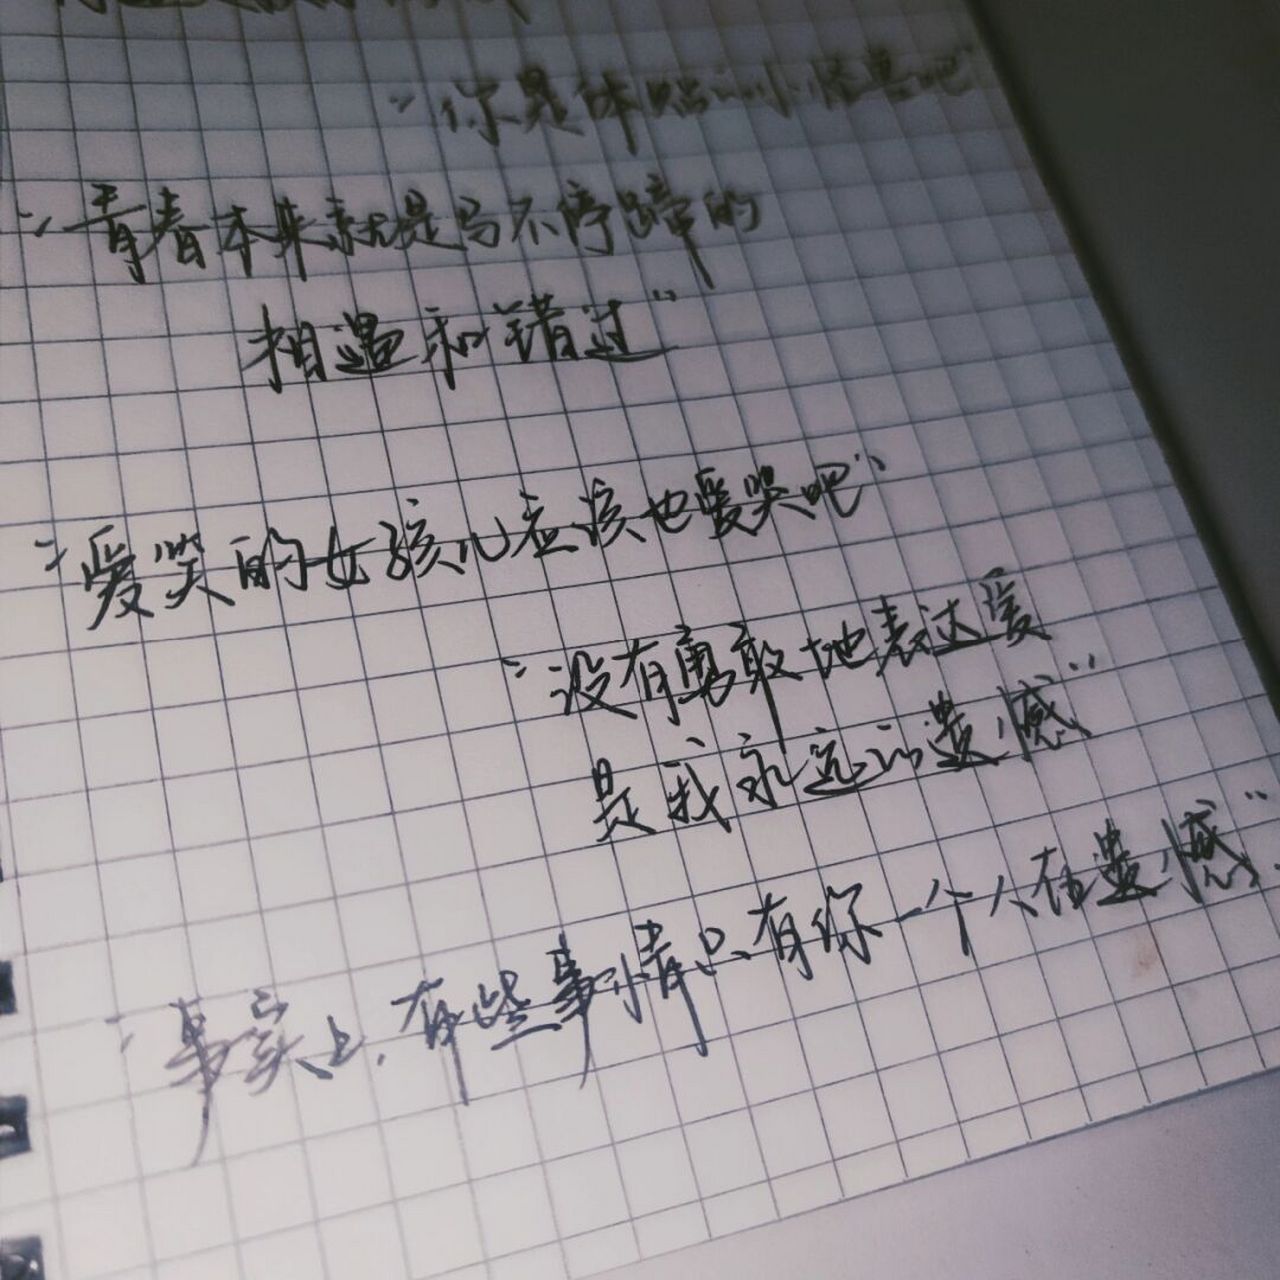 "你是体贴的小怪兽吧"
"青春本来就是马不停蹄的
相遇和错过"
"爱笑的女孩儿应该也爱哭吧"
"没有勇敢地表达爱
是我永远的遗憾"
"事实上,有些事情只有你一个人在遗憾"